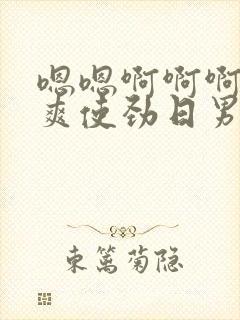 嗯嗯啊啊啊
爽使劲日男
东篱菊隐